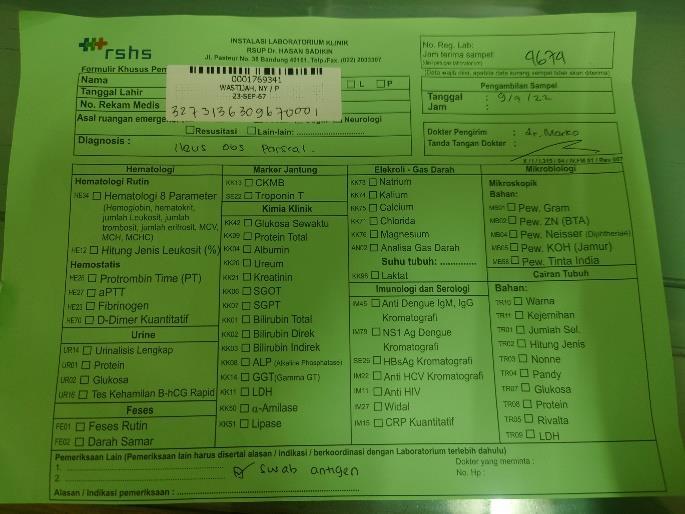 rshs
INSTALASI LABORATORIUM KLINIK
RSUP Dr. HASAN SADIKIN
Jl. Pasteur No. 38 Bandung 40161, Telp./Fax. (022) 2033307
Formulir Khusus Pem
Nama
Tanggal Lahir
No. Rekam Medis
0001769341
WASTIJAH, NY / P
23-SEP-67
3273136309670001
L P
Asal ruangan emergen Neurologi
Resusitasi Lain-lain:
Diagnosis : Ileus obs Parsial
No. Reg. Lab:
Jam terima sampel: 9679
(Data wajib diisi, apabila data kurang sampel tidak akan diterima)
Pengambilan Sampel
Tanggal : 9/9/22
Jam :
Dokter Pengirim : dr. Marko
Tanda Tangan Dokter :
Hematologi
Hematologi Rutin
HE34 Hematologi 8 Parameter
(Hemoglobin, hematokrit,
jumlah Leukosit, jumlah
trombosit, jumlah eritrosit, MCV,
MCH, MCHC)
HE12 Hitung Jenis Leukosit (%)
Hemostatis
HE26 Protrombin Time (PT)
HE27 aPTT
HE23 Fibrinogen
HE70 D-Dimer Kuantitatif
Urine
UR14 Urinalisis Lengkap
UR01 Protein
UR02 Glukosa
UR16 Tes Kehamilan B-hCG Rapid
Feses
FE01 Feses Rutin
FE02 Darah Samar
Marker Jantung
KK13 CKMB
SE22 Troponin T
Kimia Klinik
KK42 Glukosa Sewaktu
KK09 Protein Total
KK04 Albumin
KK26 Ureum
KK21 Kreatinin
KK06 SGOT
KK07 SGPT
KK01 Bilirubin Total
KK02 Bilirubin Direk
KK03 Bilirubin Indirek
KK08 ALP (Alkaline Phosphatase)
KK14 GGT(Gamma GT)
KK11 LDH
KK50 α-Amilase
KK51 Lipase
Elekroli - Gas Darah
KK73 Natrium
KK74 Kalium
KK75 Calcium
KK71 Chlorida
KK76 Magnesium
AN02 Analisa Gas Darah
Suhu tubuh: ..............
KK96 Laktat
Imunologi dan Serologi
IM45 Anti Dengue IgM, IgG
Kromatografi
IM79 NS1 Ag Dengue
Kromatografi
SE26 HBsAg Kromatografi
IM22 Anti HCV Kromatografi
IM11 Anti HIV
IM27 Widal
IM15 CRP Kuantitatif
Mikrobiologi
Mikroskopik
Bahan:
MB01 Pew. Gram
MB02 Pew. ZN (BTA)
MB04 Pew. Neisser (Dijihtheriae)
MB65 Pew. KOH (Jamur)
MB68 Pew. Tinta India
Cairan Tubuh
Bahan:
TR10 Warna
TR11 Kejernihan
TR01 Jumlah Sel.
TR02 Hitung Jenis
TR03 Nonne
TR04 Pandy
TR07 Glukosa
TR08 Protein
TR05 Rivalta
TR09 LDH
Pemeriksaan Lain (Pemeriksaan lain harus disertai alasan / indikasi / berkoordinasi dengan Laboratorium terlebih dahulu)
1.
2.
swab antigen
Dokter yang meminta :
No. Hp :
Alasan / Indikasi pemeriksaan :